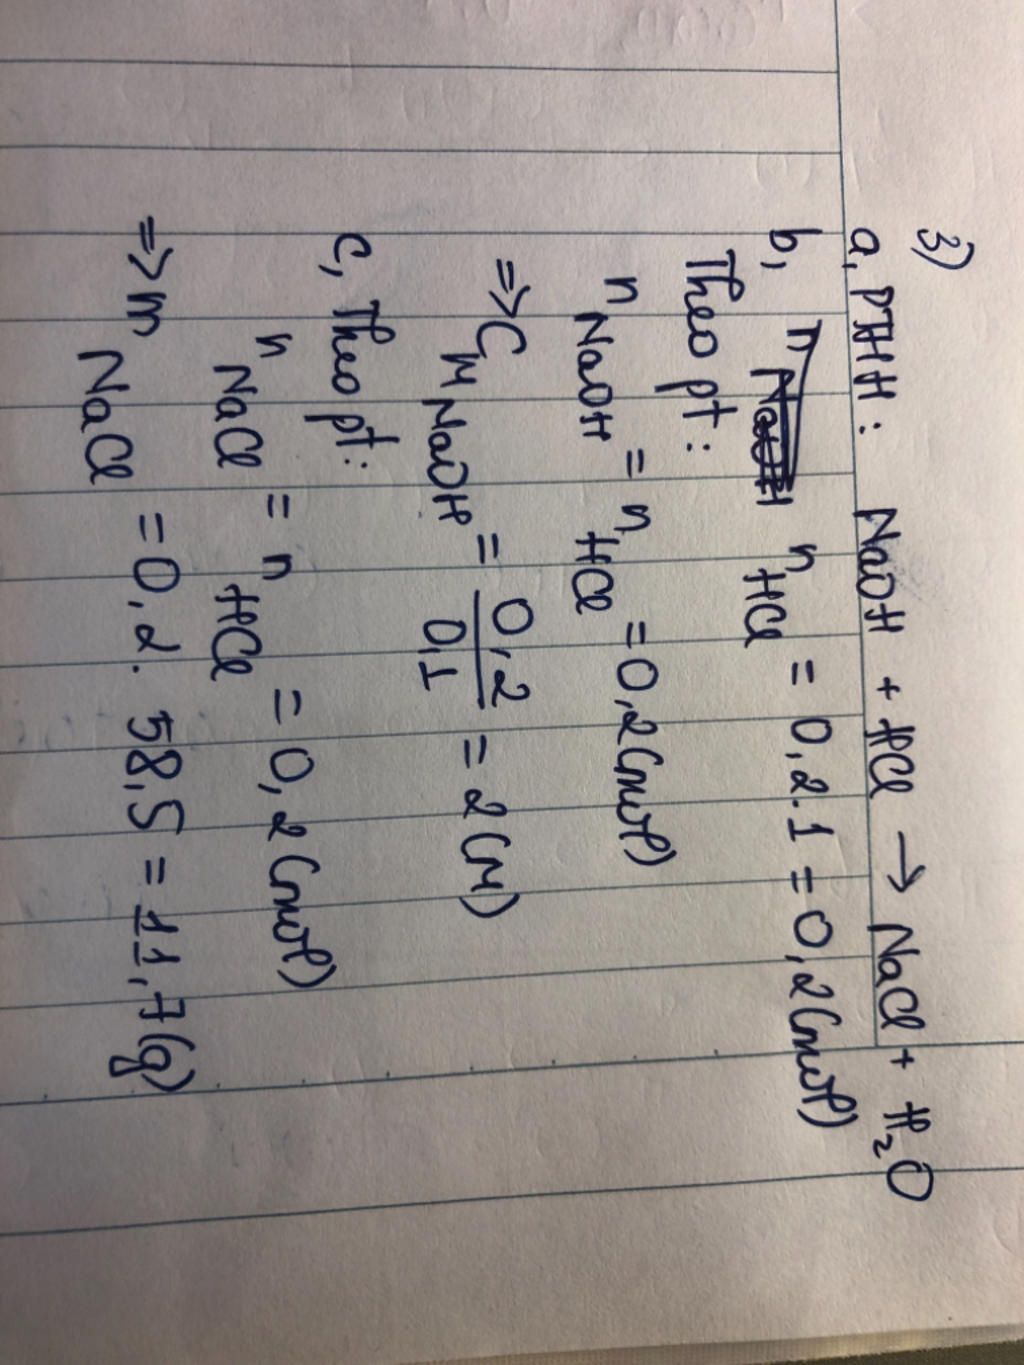 3)
a, PTHH: NaOH + HCl → NaCl + H₂O
b, n HCl = 0,2.1 = 0,2 (mol)
Theo pt:
n NaOH = n HCl = 0,2 (mol)
=> C M NaOH = 0,2 / 0,1 = 2 (M)
c, Theo pt:
n NaCl = n HCl = 0,2 (mol)
=> m NaCl = 0,2. 58,5 = 11,7 (g)